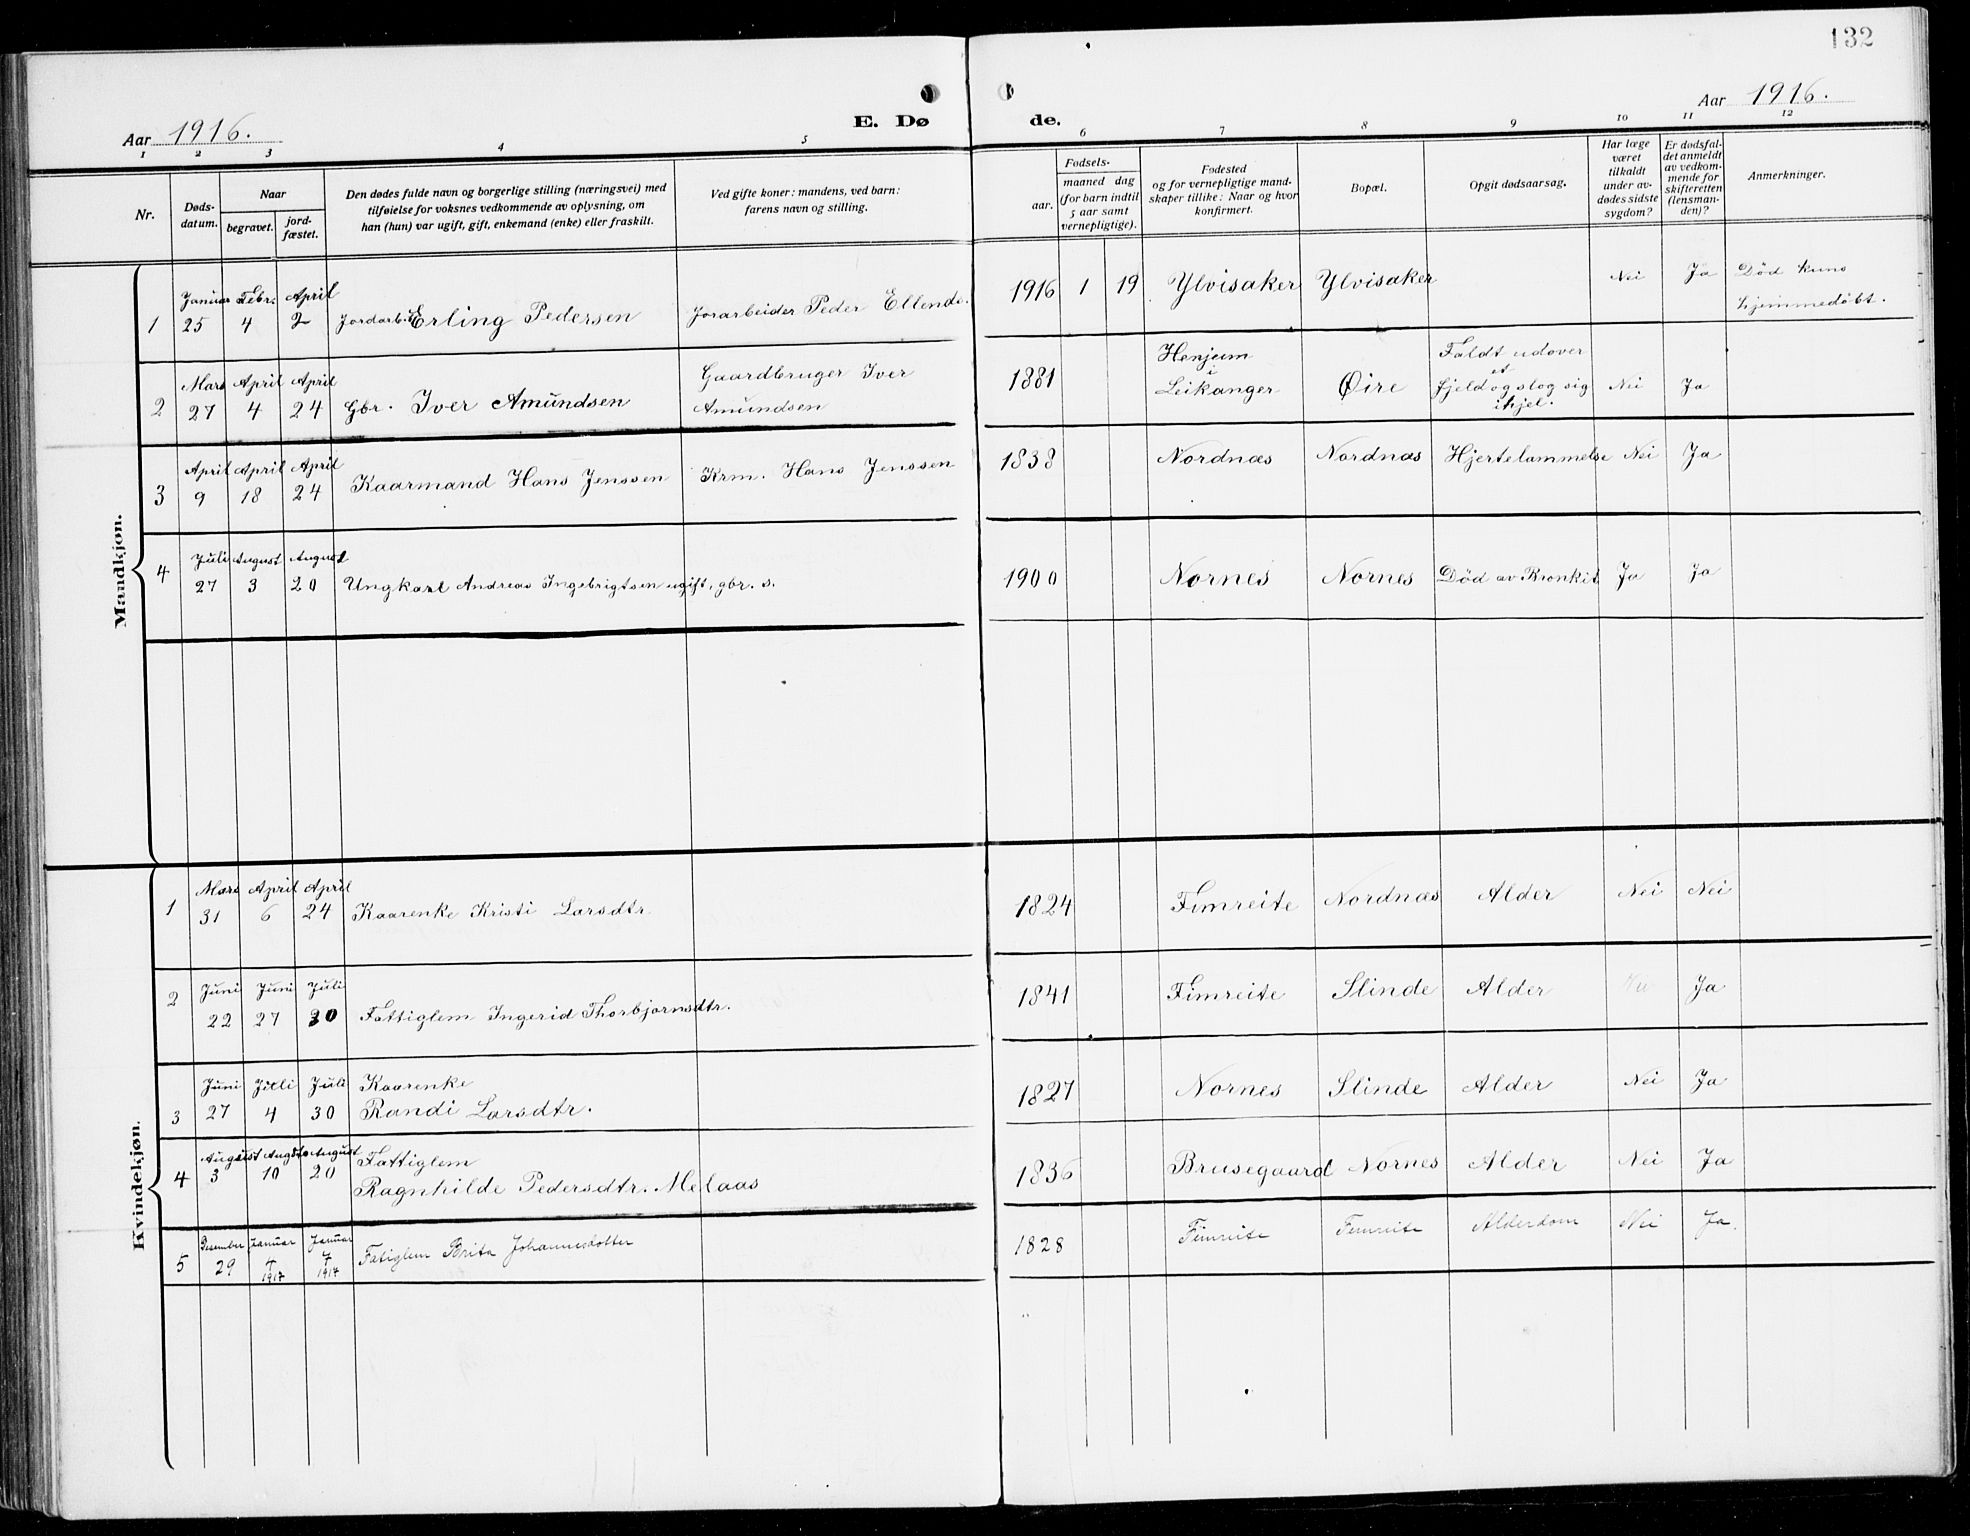 132
Aar 1916.
E. Døde.
Aar 1916.
1 2 3 4 5 6 7 8 9 10 11 12
Nr.
Døds-
datum.
Naar
begravet.
jord-
fæstet.
Den dødes fulde navn og borgerlige stilling (næringsvei) med
tilføielse for voksnes vedkommende av oplysning, om
han (hun) var ugift, gift, enkemand (enke) eller fraskilt.
Ved gifte koner: mandens, ved barn:
farens navn og stilling.
Fødsels-
aar.
maaned dag
(for barn indtil
5 aar samt
vernepligtige).
Fødested
og for vernepligtige mand-
skaper tillike: Naar og hvor
konfirmert.
Bopæl.
Opgit dødsaarsag.
Har læge
været
tilkaldt
under av-
dødes sidste
sygdom?
Er dødsfal-
det anmeldt
av vedkom-
mende for
skifteretten
(lensman-
den)?
Anmerkninger.
Mandkjøn.
1 Januar 25 Febr. 4 April 2 Jordarb. Erling Pedersen Jorarbeider Peder Ellends. 1916 1 19 Ylvisaker Ylvisaker Nei Ja Død kuns
hjemmedøbt.
2 Mars 27 April 4 April 24 Gbr. Iver Amundsen Gaardbruger Iver
Amundsen 1881 Henjum
i
Leikanger Øire Faldt udover
et
fjeld og slog sig
ihjel. Nei Ja
3 April 9 April 18 April 24 Kaarmand Hans Jenssen Krm. Hans Jenssen 1838 Nordnæs Nordnæs Hjertelammelse Nei Ja
4 Juli 27 August 3 August 20 Ungkarl Andreas Ingebrigtsen ugift, gbr. s. 1900 Nornes Nornes Død av Bronkit Ja Ja
Kvindekjøn.
1 Mars 31 April 6 April 24 Kaarenke Kristi Larsdtr. 1824 Fimreite Nordnæs Alder Nei Nei
2 Juni 22 Juni 27 Juli 30 Fattiglem Ingerid Thorbjørnsdtr. 1841 Fimreite Slinde Alder Ja
3 Juni 27 Juli 4 Juli 30 Kaarenke
Randi Larsdtr. 1827 Nornes Slinde Alder Nei Ja
4 August 3 August 10 August 20 Fattiglem
Ragnhilde Pedersdtr. Melaas 1836 Brusegaard Nornes Alder Nei Ja
5 Desember 29 Januar 7 1917 Januar 7 1917 Fatiglem Brita Johannesdotter 1828 Fimreite Fimreite Alderdom Nei Ja.